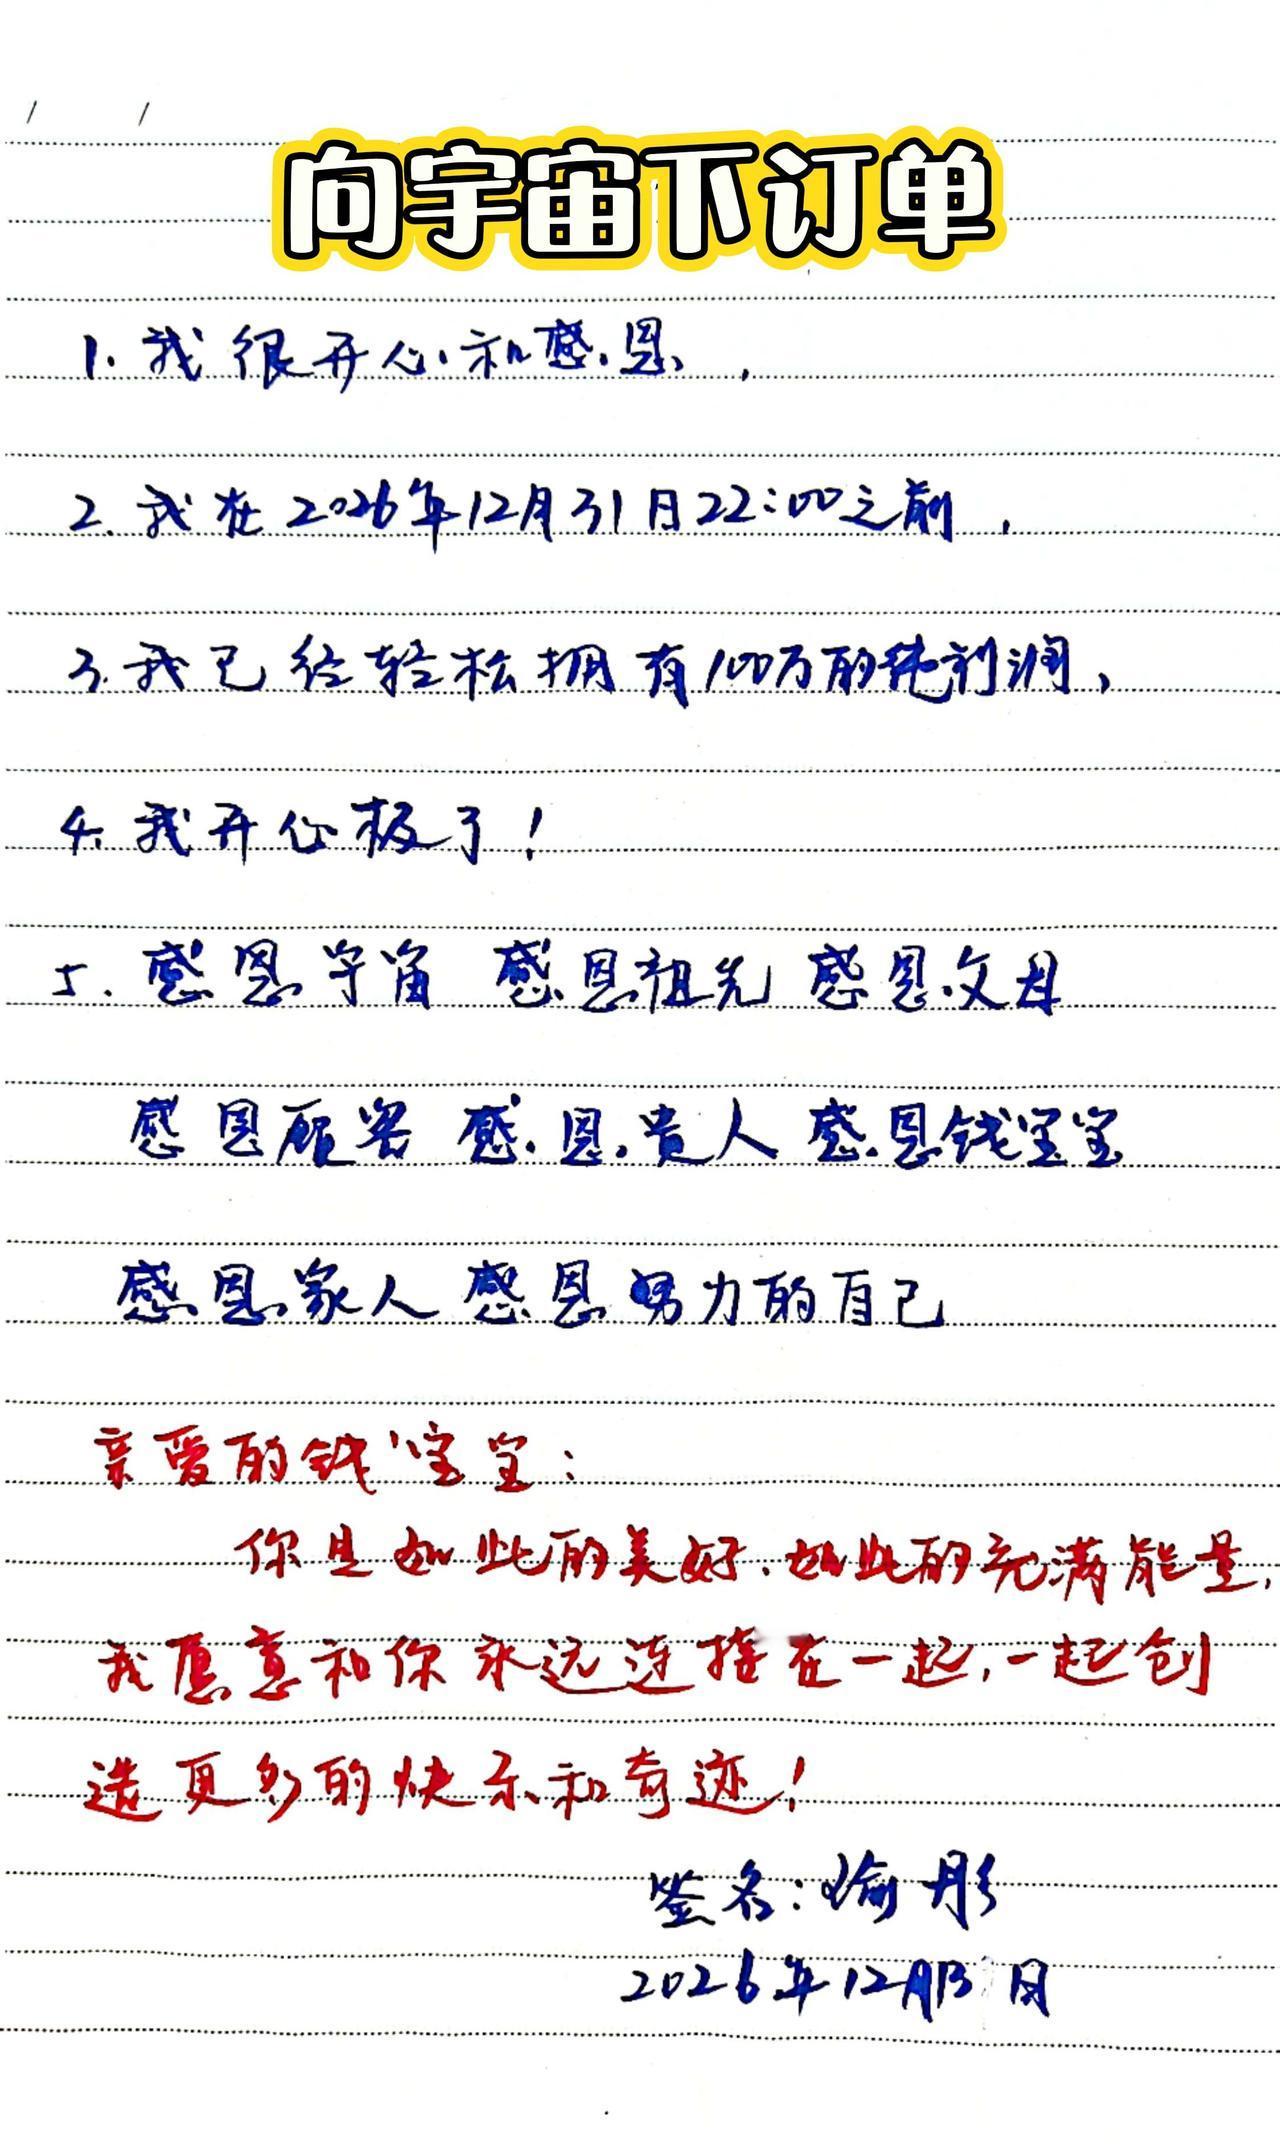 向宇宙下订单
1. 我很开心和感恩,
2. 我在2026年12月31日22:00之前,
3. 我已经轻松拥有100万的纯利润,
4. 我开心极了!
5. 感恩宇宙 感恩祖先 感恩父母
感恩顾客 感恩贵人 感恩钱宝宝
感恩家人 感恩努力的自己
亲爱的钱宝宝:
你是如此的美好,如此的充满能量,
我愿意和你永远连接在一起,一起创
造更多的快乐和奇迹!
签名: 彤
2026年12月 日